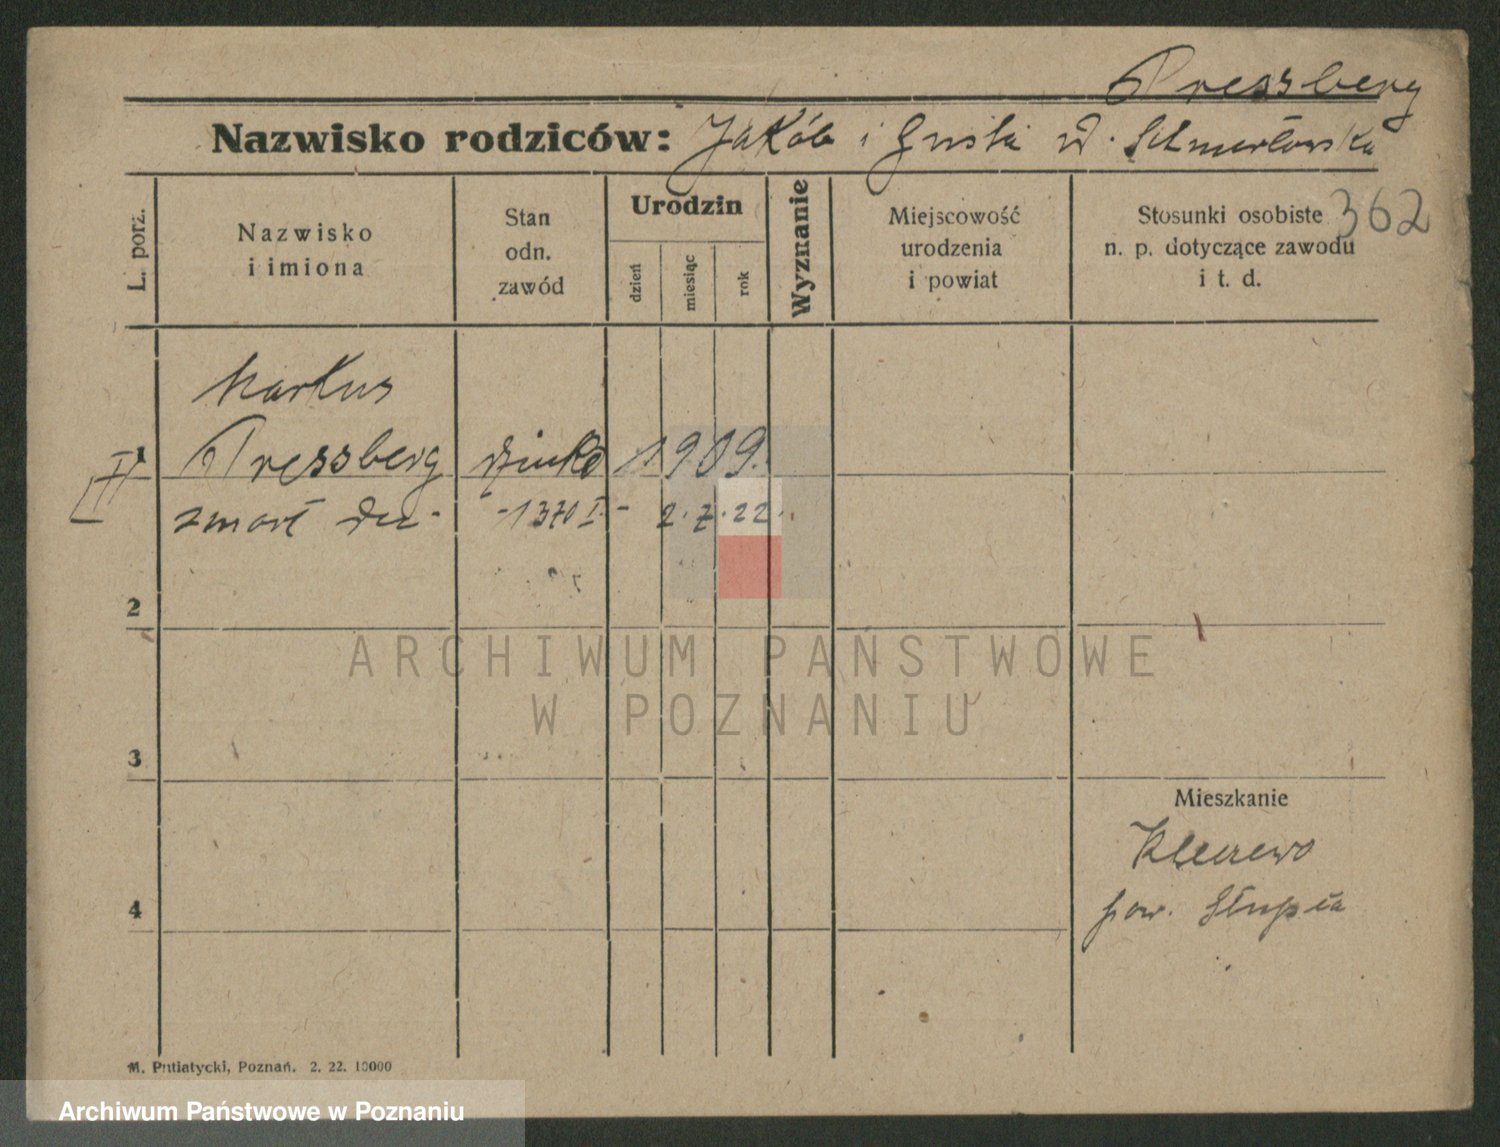 Pressberg
Nazwisko rodziców: Jakób i Gusta
362
L. porz.
Nazwisko
i imiona
Stan
odn.
zawód
Urodzin
dzień
miesiąc
rok
Wyznanie
Miejscowość
urodzenia
i powiat
Stosunki osobiste
n. p. dotyczące zawodu
i t. d.
Markus
1 Pressberg 1909.
II
zmarł 2.7.22.
2
ARCHIWUM PAŃSTWOWE
W POZNANIU
3
Mieszkanie
4
pow. Słupca
M. Putiatycki, Poznań. 2. 22. 10000
Archiwum Państwowe w Poznaniu